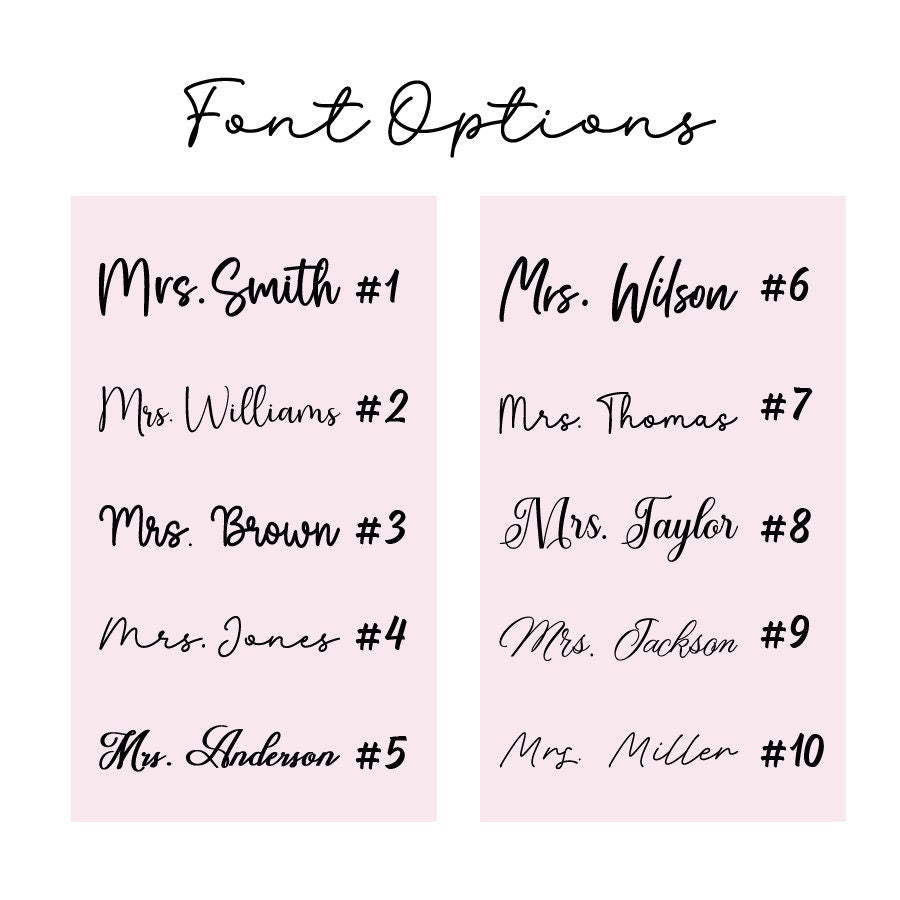 Font Options
Mrs. Smith #1
Mrs. Williams #2
Mrs. Brown #3
Mrs. Jones #4
Mrs. Anderson #5
Mrs. Wilson #6
Mrs. Thomas #7
Mrs. Taylor #8
Mrs. Jackson #9
Mrs. Miller #10